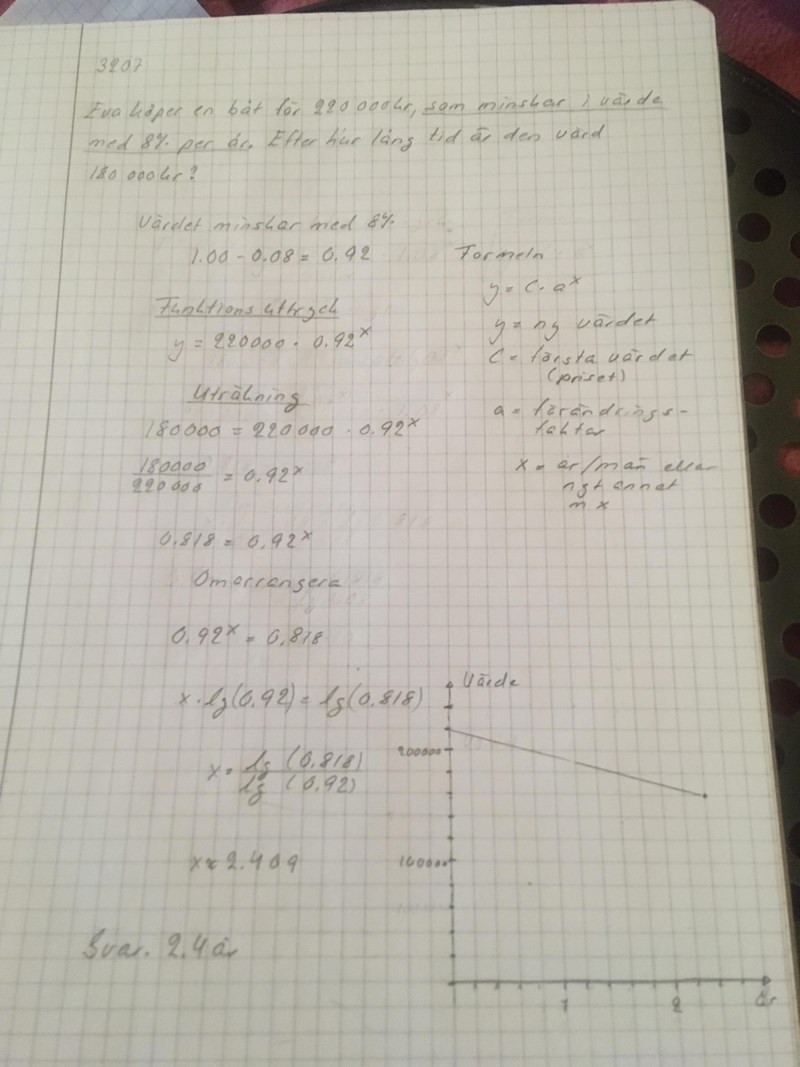 3207
Eva köper en båt för 220 000kr, som minskar i värde
med 8% per år. Efter hur lång tid är den värd
180 000kr?
Värdet minskar med 8%
1.00 - 0.08 = 0.92
Funktions uttryck
y = 220000 · 0.92^x
Uträkning
180000 = 220000 · 0.92^x
180000/220000 = 0.92^x
0.818 = 0.92^x
Omarrangera
0.92^x = 0,818
x · lg(0.92) = lg(0.818)
x = lg (0.818)/lg (0.92)
x ≈ 2.409
Svar. 2.4 år
Formeln
y = C · a^x
y = ny värdet
C = första värdet
(priset)
a = förändrings-
faktor
x = år/mån eller
ngt annat
m x
Värde
200000
100000
1 2 år